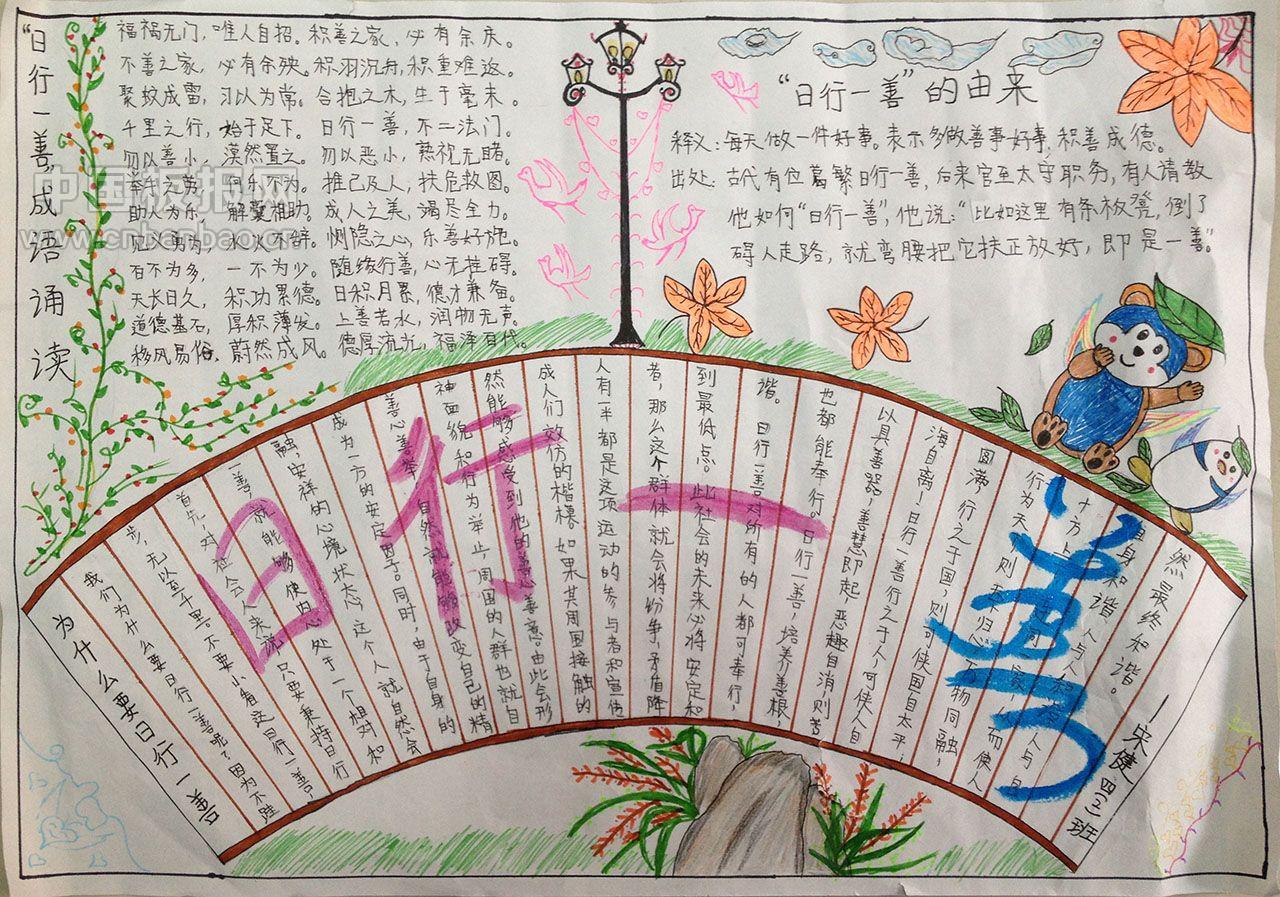 “日行一善”成语诵读
福祸无门，唯人自招。积善之家，必有余庆。
不善之家，必有余殃。积羽沉舟，积重难返。
聚蚊成雷，习以为常。合抱之木，生于毫末。
千里之行，始于足下。日行一善，不二法门。
勿以善小，漠然置之。勿以恶小，熟视无睹。
推己及人，扶危救困。
助人为乐，解囊相助。成人之美，竭尽全力。
见义勇为，水火不辞。恻隐之心，乐善好施。
百不为多，一不为少。随缘行善，心无挂碍。
天长日久，积功累德。日积月累，德才兼备。
道德基石，厚积薄发。上善若水，润物无声。
移风易俗，蔚然成风。德厚流光，福泽百代。
中国板报网
www.cnbanbao.cn
“日行一善”的由来
释义：每天做一件好事。表示多做善事好事，积善成德。
出处：古代有位葛繁日行一善，后来官至太守职务，有人请教
他如何“日行一善”，他说：“比如这里有条板凳，倒了
碍人走路，就弯腰把它扶正放好，即是一善。”
日行一善
为什么要日行一善
我们为什么要日行一善呢？因为不跬
步，无以至千里，不要小看这日行一善，
首先，对社会人来说，只要秉持日行
一善，就能够使内心处于一个相对和
融，安祥的心境状态，这个人就自然会
成为一方的安定因子。同时，由于自身的
善心善举，自然就能够改变自己的精
神面貌和行为举止，周围的人群也就自
然能够感受到他的善心善意。由此会形
成人们效仿的楷模，如果其周围接触的
人有一半都是这项运动的参与者和宣传
者，那么这个群体就会将纷争，矛盾降
到最低点。此社会的未来必将安定和
谐。日行一善对所有的人都可奉行，
也都能奉行。日行一善，培养善根，
以具善器，善慧即起，恶趣自消，则苦
海自离！日行一善行之于人，可使人自
圆满，行之于国，则可使国自太平，
行为天，则天归心，万物同融，
十方上 而使人
自身和谐，人与人和 人与自
然最终和谐。
——宋健 四(3)班